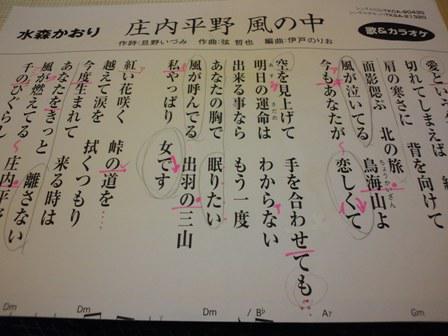 水森かおり
庄内平野 風の中
歌&カラオケ
作詩:旦野いづみ 作曲:弦 哲也 編曲:伊戸のりお
愛とい
切れてしまえば 背を向けて
肩の寒さに 北の旅
面影偲ぶ 鳥海山よ
ちょうかいざん
風が泣いてる
今もあなたが 恋しくて
空を見上げて 手を合わせても
明日の運命は わからない
あす さだめ
出来る事なら もう一度
あなたの胸で 眠りたい
風が呼んでる 出羽の三山
私やっぱり 女です
紅い花咲く 峠の道を
越えて涙を 拭くつもり
今度生まれて 来る時は
あなたをきっと 離さない
風が燃えてる
千のひぐらし 庄内平
Dm Dm Dm /B♭ A7 Gm